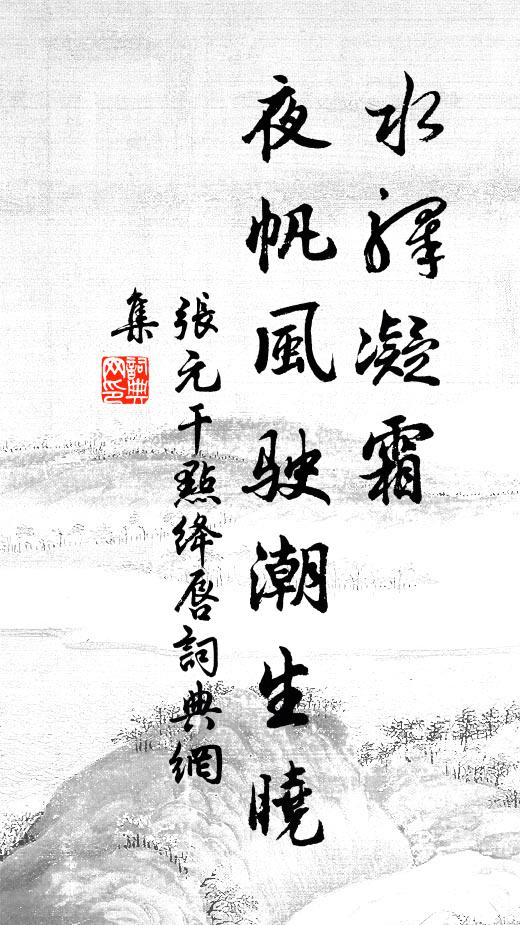 水驛凝霜
夜帆風駛潮生曉
張元干點絳唇詞典網
集
詞典
网印